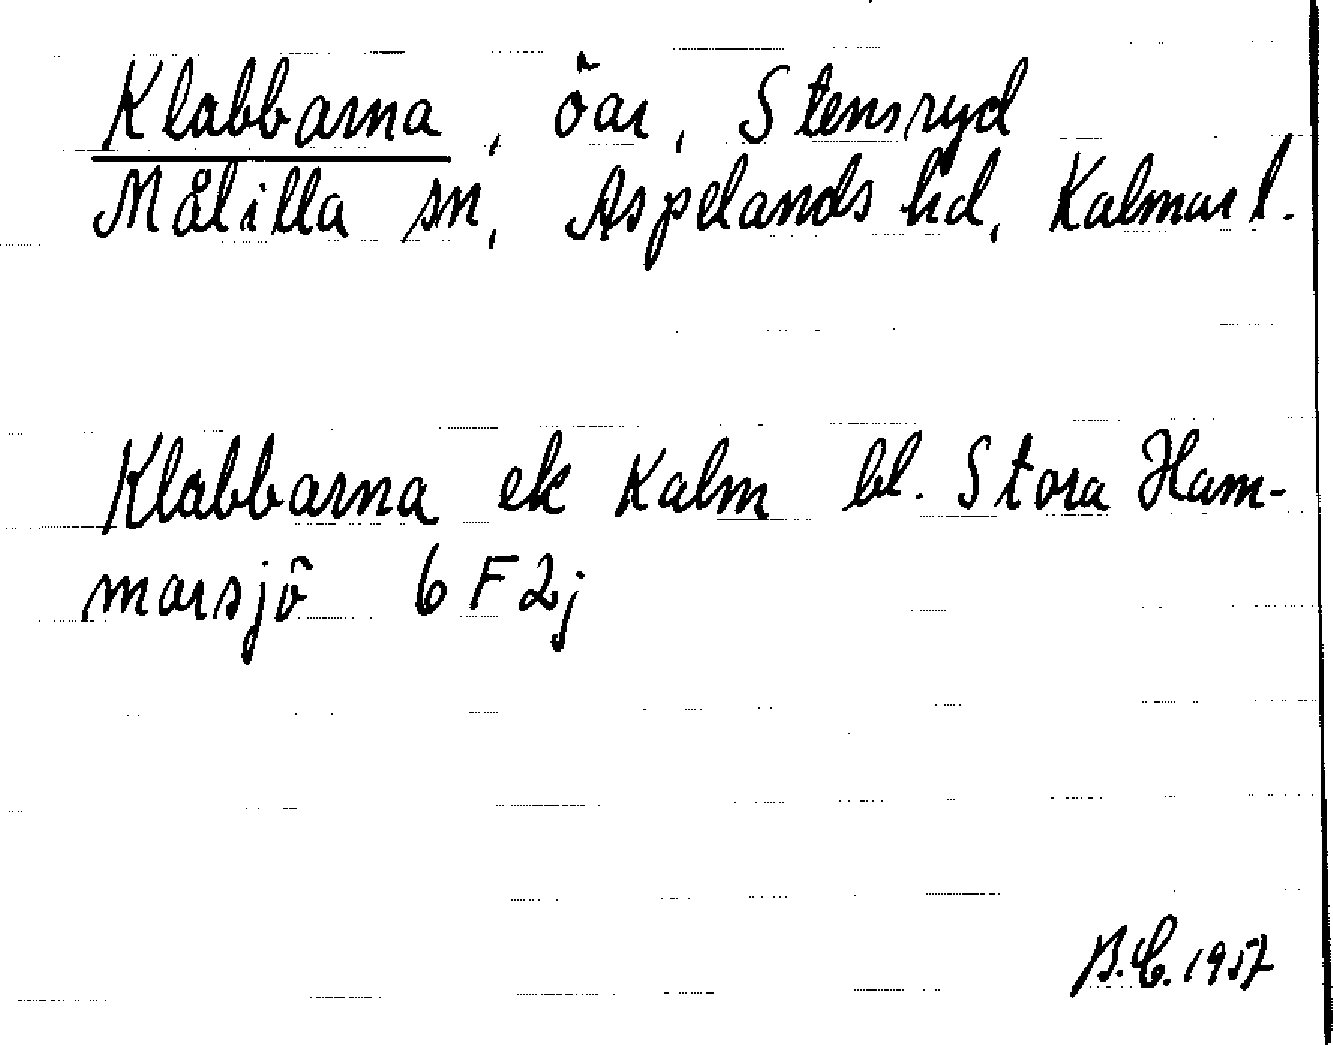 Klabbarna, öar, Stensryd
Målilla sn, Aspelands hd, Kalmar l.
Klabbarna ek Kalm bl. Stora Ham-
marsjö 6F2j
B.E. 1957